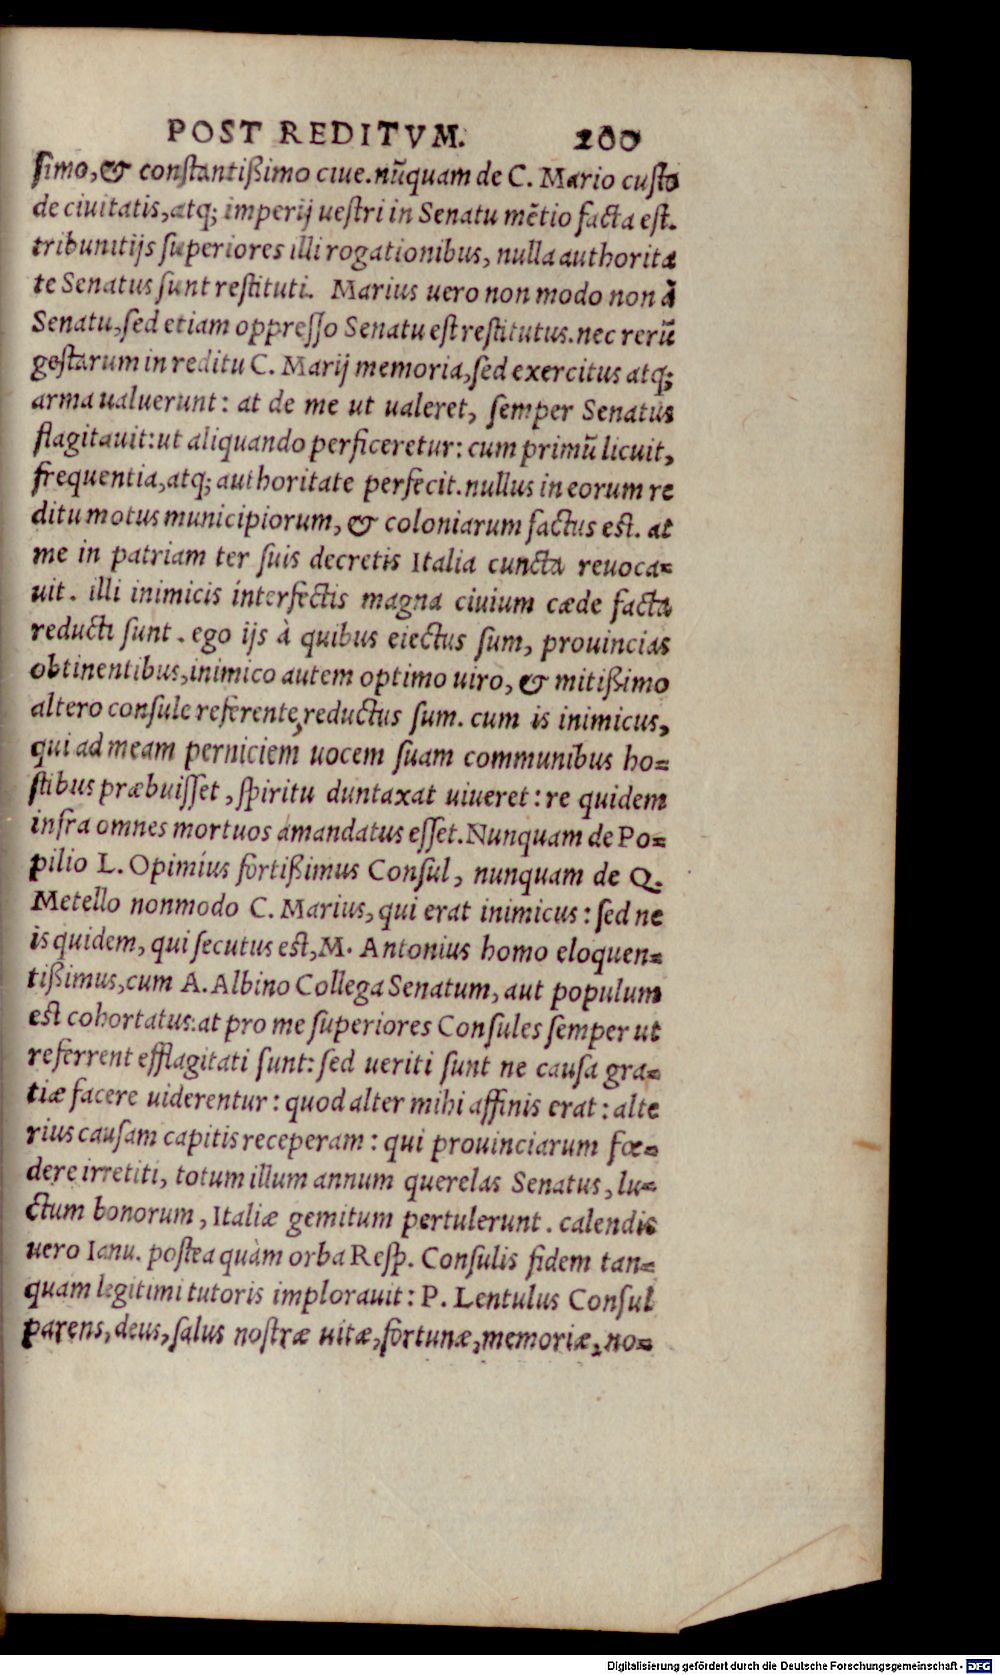 POST REDITVM. 200
simo, & constantißimo ciue. nūquam de C. Mario custo
de ciuitatis, atq; imperij uestri in Senatu mẽtio facta est.
tribunitijs superiores illi rogationibus, nulla authorita
te Senatus sunt restituti. Marius uero non modo non à
Senatu, sed etiam oppresso Senatu est restitutus. nec rerũ
gestarum in reditu C. Marij memoria, sed exercitus atq;
arma ualuerunt: at de me ut ualeret, semper Senatus
flagitauit: ut aliquando perficeretur: cum primũ licuit,
frequentia, atq; authoritate perfecit. nullus in eorum re
ditu motus municipiorum, & coloniarum factus est. at
me in patriam ter suis decretis Italia cuncta reuoca=
uit. illi inimicis interfectis magna ciuium cæde facta
reducti sunt. ego ijs à quibus eiectus sum, prouincias
obtinentibus, inimico autem optimo uiro, & mitißimo
altero consule referente, reductus sum. cum is inimicus,
qui ad meam perniciem uocem suam communibus ho=
stibus præbuisset, spiritu duntaxat uiueret: re quidem
infra omnes mortuos amandatus esset. Nunquam de Po=
pilio L. Opimius fortißimus Consul, nunquam de Q.
Metello nonmodo C. Marius, qui erat inimicus: sed ne
is quidem, qui secutus est, M. Antonius homo eloquen=
tißimus, cum A. Albino Collega Senatum, aut populum
est cohortatus: at pro me superiores Consules semper ut
referrent efflagitati sunt: sed ueriti sunt ne causa gra=
tiæ facere uiderentur: quod alter mihi affinis erat: alte
rius causam capitis receperam: qui prouinciarum fœ=
dere irretiti, totum illum annum querelas Senatus, lu=
ctum bonorum, Italiæ gemitum pertulerunt. calendis
uero Ianu. postea quàm orba Resp. Consulis fidem tan=
quam legitimi tutoris implorauit: P. Lentulus Consul
parens, deus, salus nostræ uitæ, fortunæ, memoriæ, no=
Digitalisierung gefördert durch die Deutsche Forschungsgemeinschaft - DFG